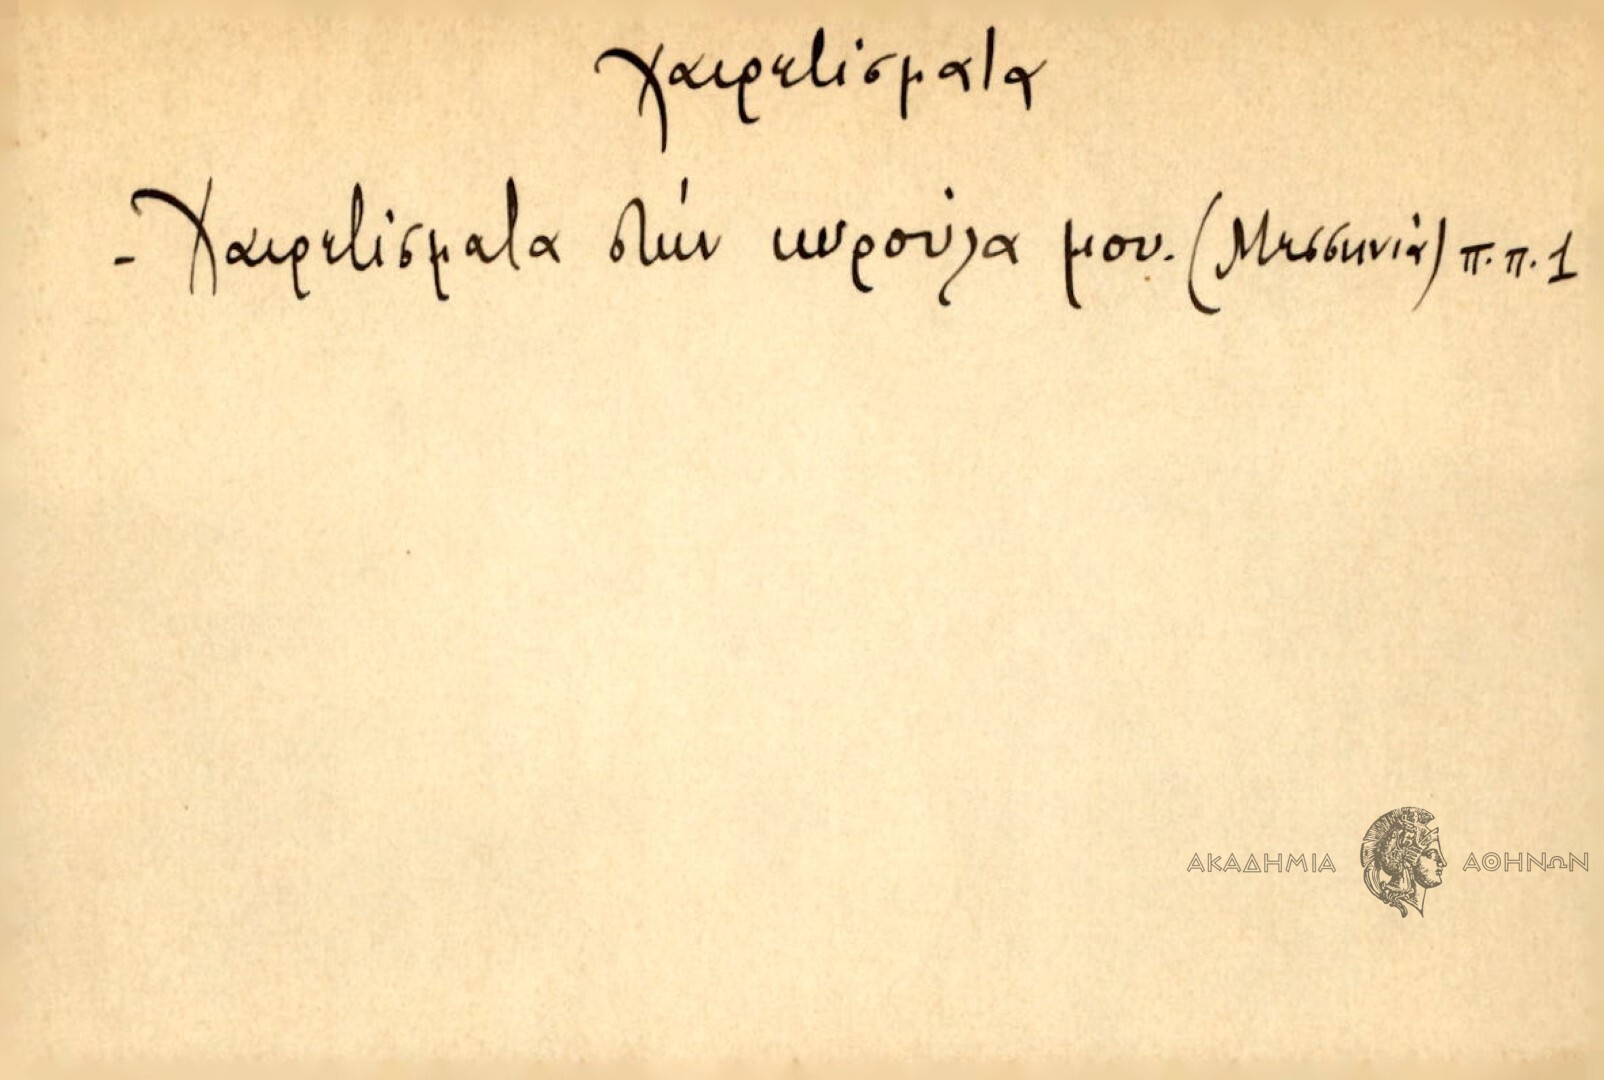 Χαιρετίσματα
- Χαιρετίσματα στήν κυρούλα μου. (Μεσσηνία) π.π. 1
ΑΚΑΔΗΜΙΑ ΑΘΗΝΩΝ